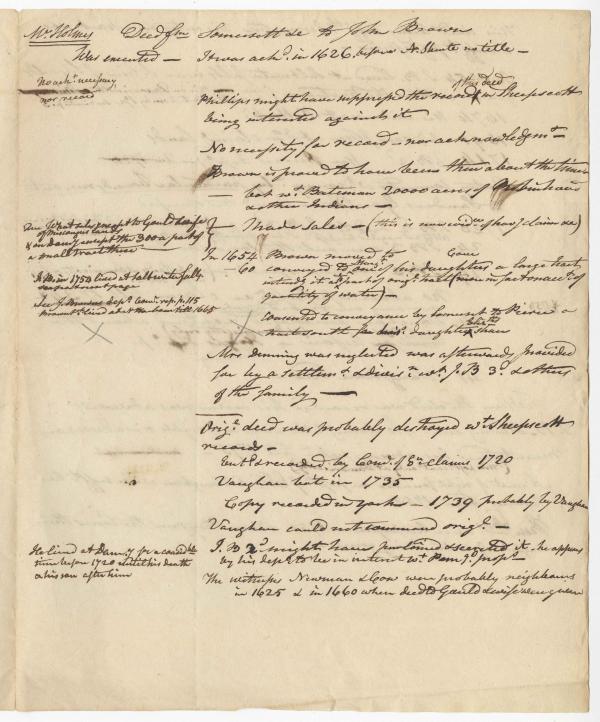 Mr Holmes Deed fm Somersett &c to John Brown
Was executed — It was ackd. in 1626 before A. Shurte no title —
No ackt. necessary
nor record
Phillips might have suppressed the record of this deed in Sheepscott
being interested against it
No necessity for record — nor acknowledgmt. —
Brown is proved to have been there about the time
— bot wt. Bateman 20000 acres of
other Indians —
— Made sales — (this is now evidce. of havg. claim &c)
What sales except to Gould & wife
of Muscongus lands
& on Damy. except the 300 a part of
a small tract there
In 1654 Brown moved to
— 60 conveyed to one of his daughters a large tract
Gould
intends it as part of orig. (more in fact on acct. of
quantity of water) —
J. B. in 1754 lived at Saltwater falls
see next page
See J. Depn. Comrs. rep. p. 115
lived at till 1665
consented to conveyance by Somerset to Peirce a
tract south for daughters share
Mrs Denning was neglected was afterwards provided
for by a settlemt. & divisn. wt. J. B 3d. & others
of the family —
Origl. deed was probably destroyed wt. Sheepscott
records —
Entd. & recorded by Comr. of En. claims 1720
Vaughan bot in 1735
Copy recorded in York — 1739 probably by Vaughan
Vaughan could not command origl. —
He lived at Damy. for a considble.
time before 1720 until his death
& his son after him
J. B 2d might have purloined & secreted it, he appears
by his depn. to be in interest wt. Pemd. propr.
The witnesses Newman & Cox were probably neighbours
in 1625 & in 1660 when deed to Gould & wife was given